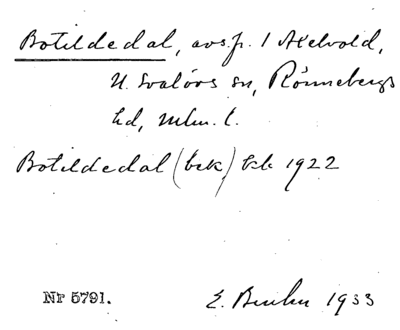 Botildedal, avs.fr. 1 Axelvold,
N. Svalövs sn, Rönnebergs
hd, Mlm. l.
Botildedal (bek) kk 1922
Nr 5791. E. 1933